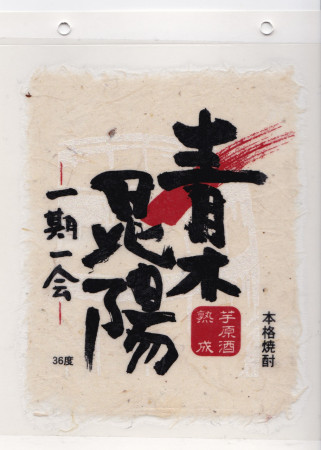 青木
昆陽
一期一会
芋原酒
熟成
本格焼酎
36度